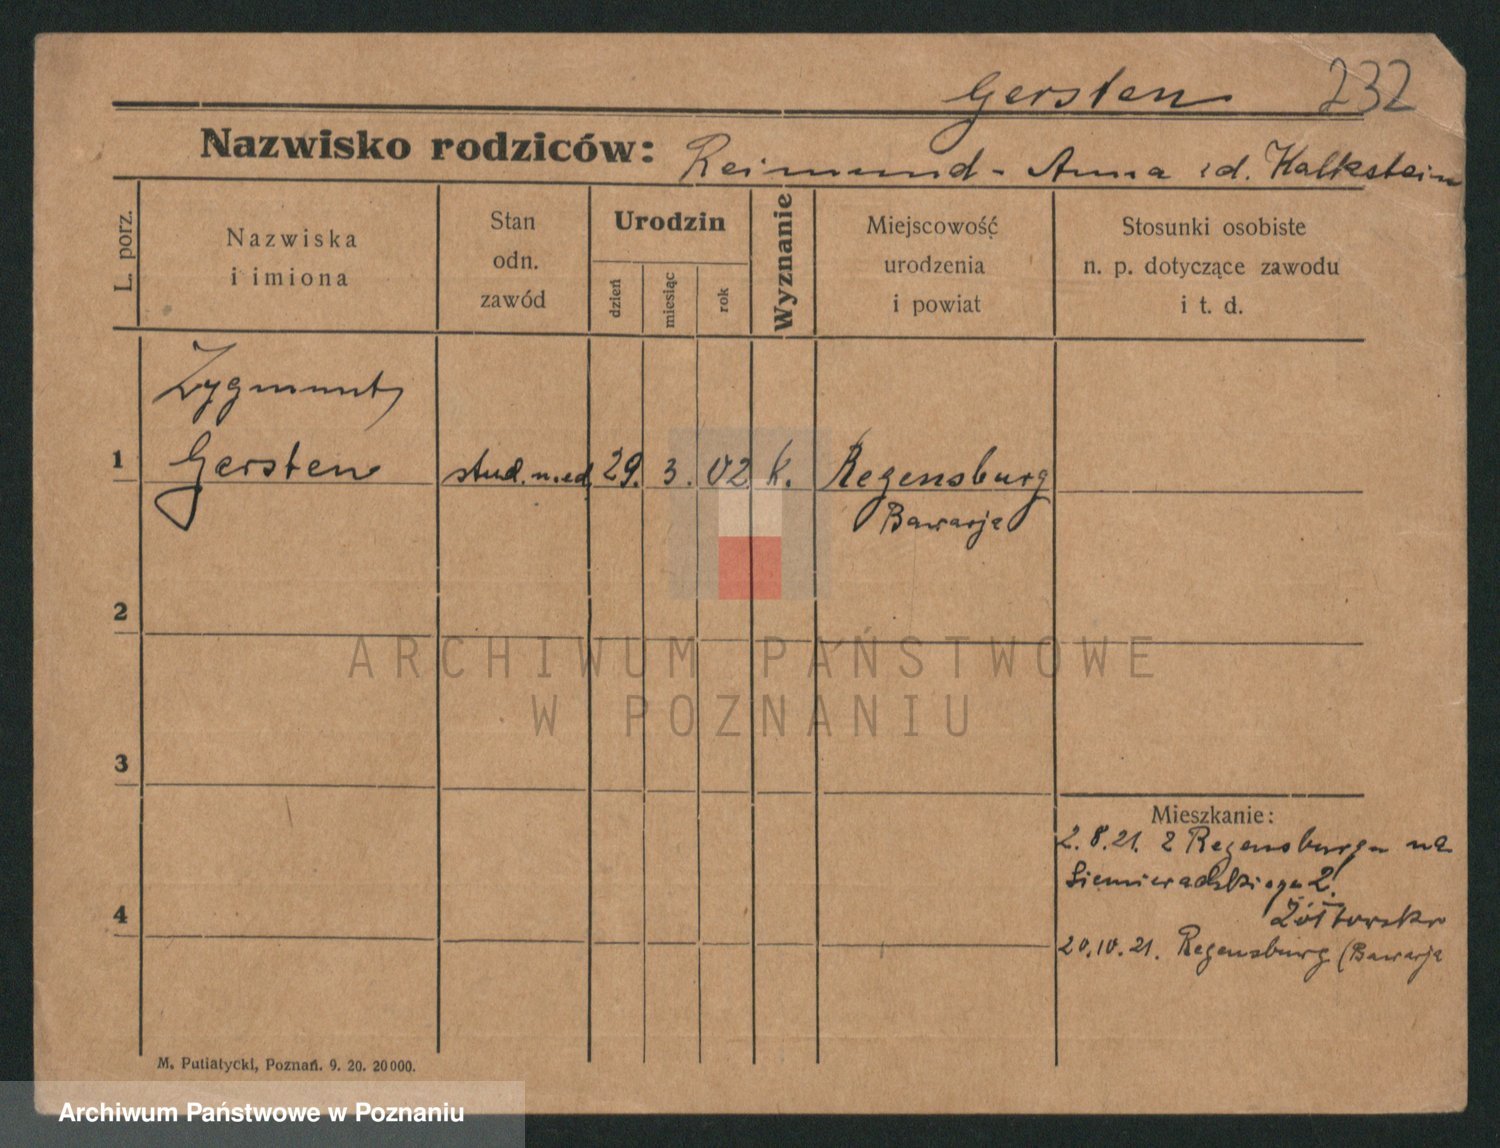 Gersten 232
Nazwisko rodziców: Reimund - Anna zd. Kalkstein
L. porz.
Nazwiska
i imiona
Stan
odn.
zawód
Urodzin
dzień
miesiąc
rok
Wyznanie
Miejscowość
urodzenia
i powiat
Stosunki osobiste
n. p. dotyczące zawodu
i t. d.
Zygmunt
1 Gersten stud. med. 29. 3. 02 k. Regensburg
Bawarja
2
ARCHIWUM PAŃSTWOWE
W POZNANIU
3
Mieszkanie:
2.8.21. z Regensburga na
Siemiradzkiego 2.
4
20.10.21. Regensburg (Bawarja
M. Putiatycki, Poznań. 9. 20. 20000.
Archiwum Państwowe w Poznaniu